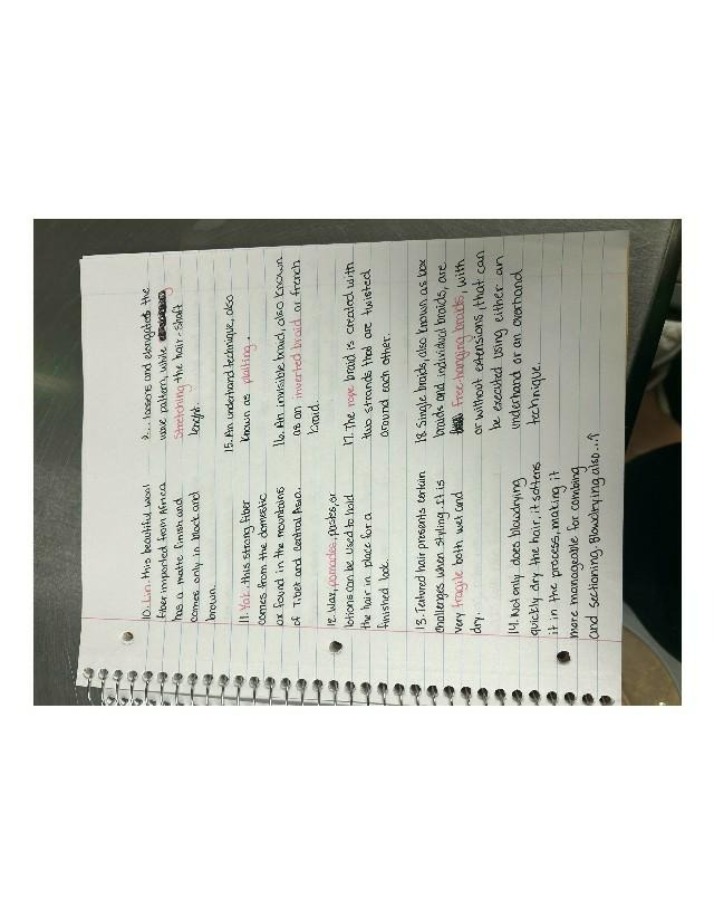 10. Lin. this beautiful wool
fiber imported from Africa
has a matte finish and
comes only in black and
brown.
11. Yak. this strong fiber
comes from the domestic
ox found in the mountains
of Tibet and central Asia.
12. Wax, pomades, pastes, or
lotions can be used to hold
the hair in place for a
finished look.
13. Textured hair presents certain
challenges when styling. It is
very fragile both wet and
dry.
14. Not only does blowdrying
quickly dry the hair, it softens
it in the process, making it
more manageable for combing
and sectioning. Blowdrying also...↑
... loosens and elongates the
wave pattern, while
stretching the hair-shaft
length.
15. An underhand technique, also
known as plaiting.
16. An invisible braid, also known
as an inverted braid or french
braid.
17. The rope braid is created with
two strands that are twisted
around each other.
18. Single braids, also known as box
braids and individual braids, are
free-hanging braids, with
or without extensions, that can
be executed using either an
underhand or an overhand
technique.